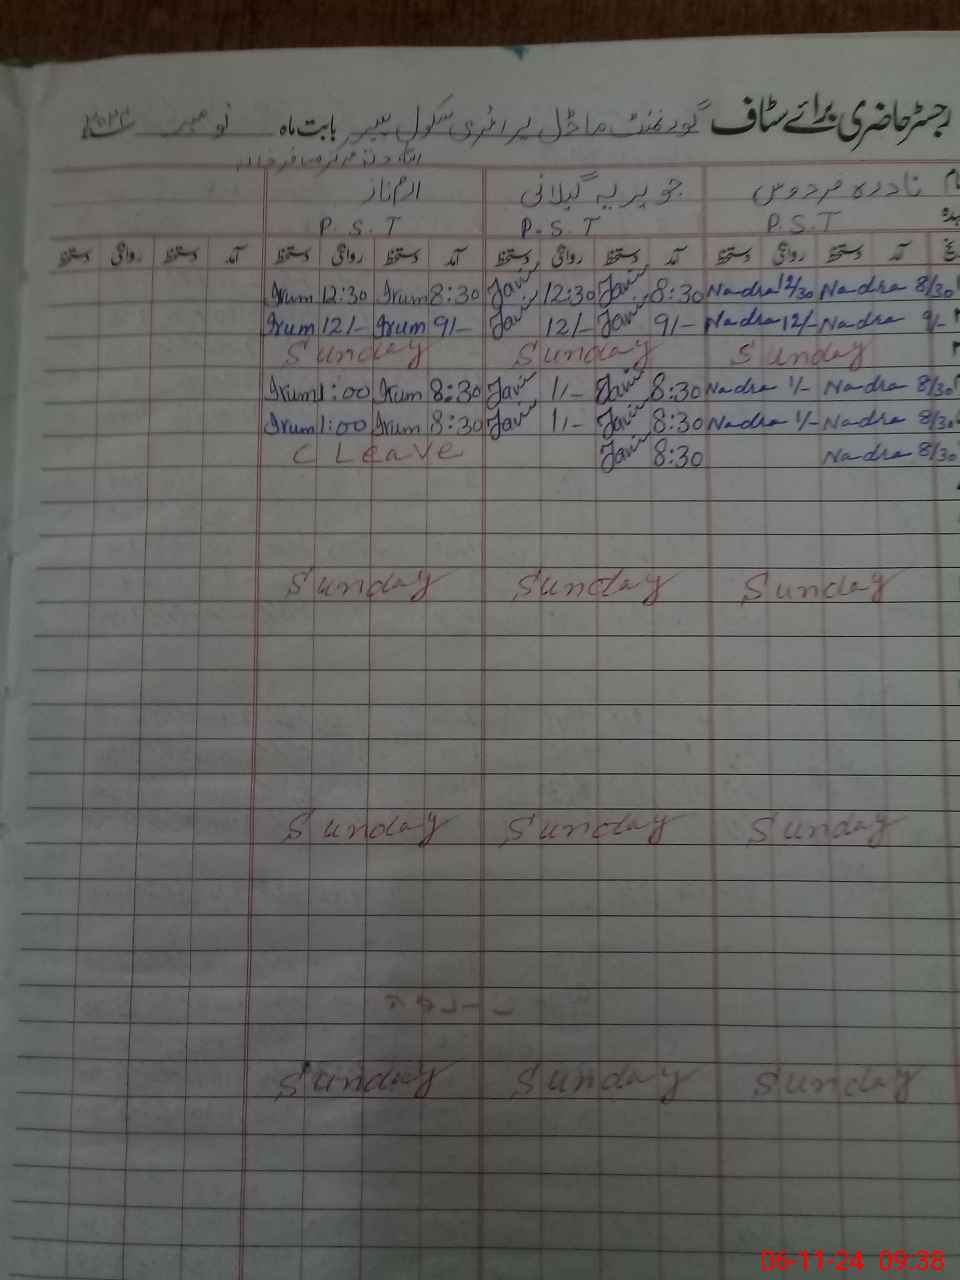 رجسٹر حاضری برائے سٹاف گورنمنٹ ماڈل پرائمری سکول بابت ماہ نومبر
نادرہ فردوس جویریہ گیلانی ارم ناز
P.S.T P.S.T P.S.T
آمد دستخط روانگی دستخط آمد دستخط روانگی دستخط آمد دستخط روانگی دستخط آمد دستخط روانگی دستخط
Irum 12:30 Irum 8:30 Javi 12:30 Javi 8:30 Nadra 12/30 Nadra 8/30
Irum 12/- Irum 9/- Javi 12/- Javi 9/- Nadra 12/- Nadra 9/-
Sunday Sunday Sunday
Irum 1:00 Irum 8:30 Javi 1/- Javi 8:30 Nadra 1/- Nadra 8/30
Irum 1:00 Irum 8:30 Javi 1/- Javi 8:30 Nadra 1/- Nadra 8/30
C Leave Javi 8:30 Nadra 8/30
Sunday Sunday Sunday
Sunday Sunday Sunday
Sunday Sunday Sunday
06-11-24 09:38